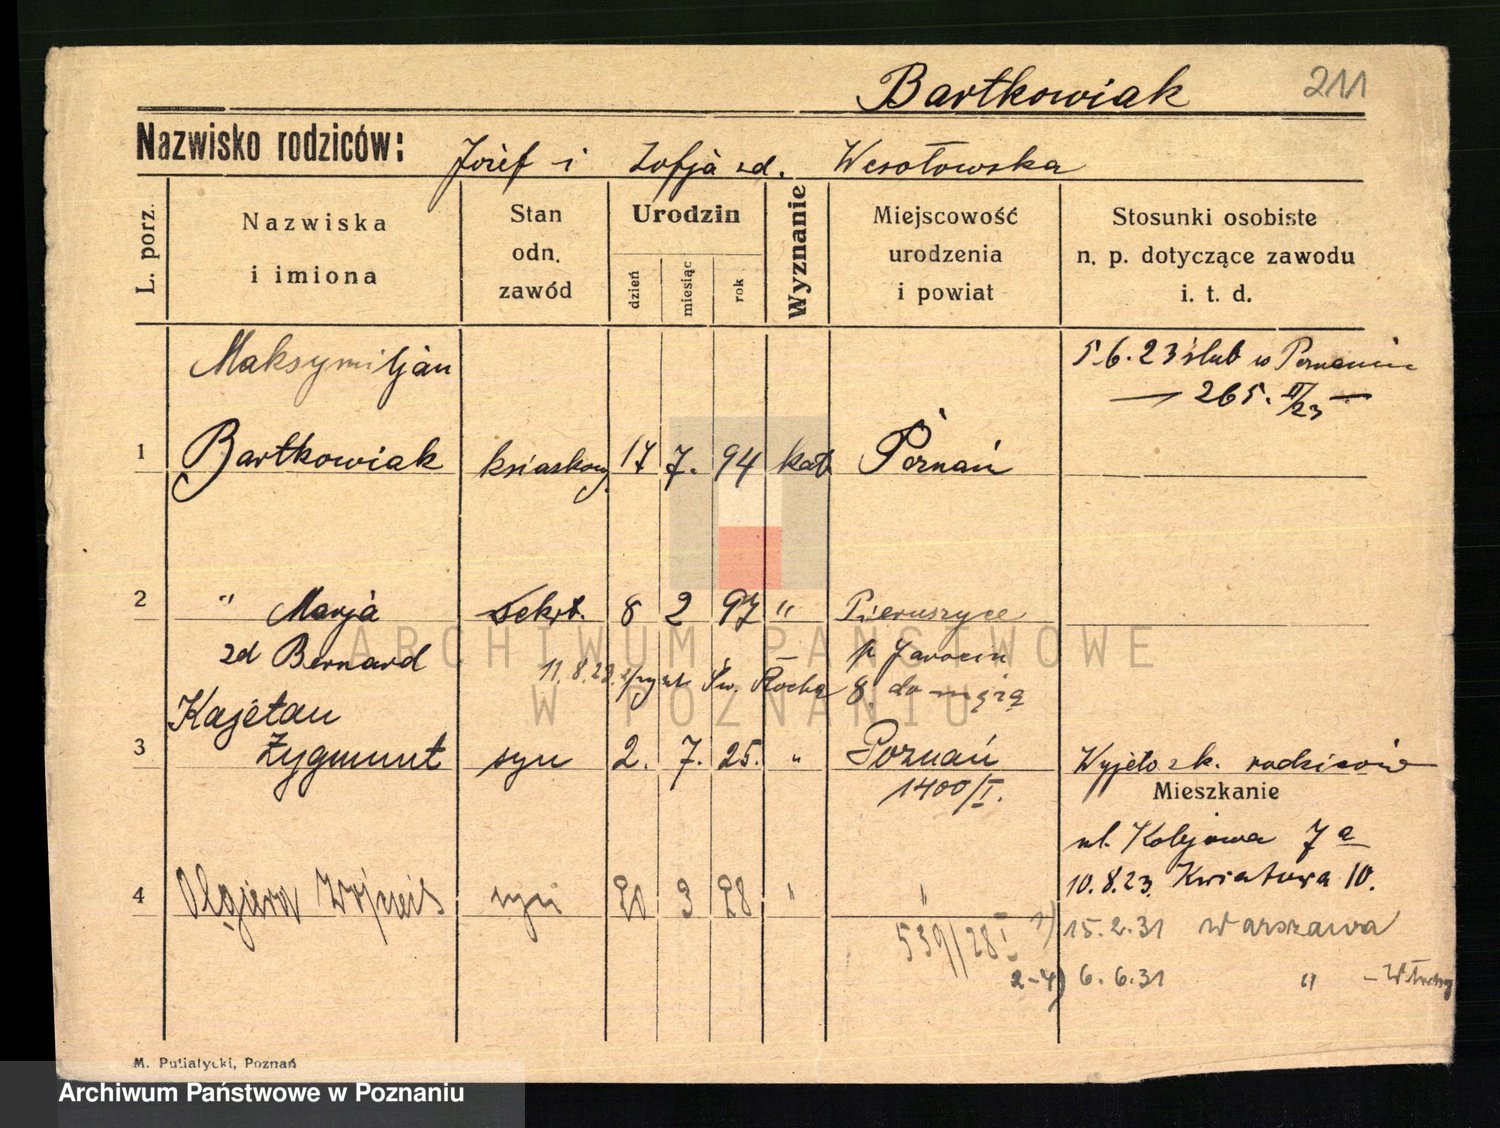 Bartkowiak 211
Nazwisko rodziców: Józef i Zofja zd. Wesołowska
L. porz.
Nazwiska
i imiona
Stan
odn.
zawód
Urodzin
dzień
miesiąc
rok
Wyznanie
Miejscowość
urodzenia
i powiat
Stosunki osobiste
n. p. dotyczące zawodu
i. t. d.
Maksymiljan
5.6.23 ślub w Poznaniu
— 265. II/23 —
1 Bartkowiak ksiaskow. 17 7. 94 kat Poznań
2 " Marja sekrt. 8 2 97 " Pieruszyce
zd Bernard
p Jarocin
11.8.28 Św. Rocha 8. do męża
Kajetan
3 Zygmunt syn 2. 7. 25. " Poznań
1400/I.
Wyjęto z k. rodziców
Mieszkanie
ul. Kolejowa 7a
10.8.23 Kwiatowa 10.
4 syn 20 3 28 " "
539/28 I
1) 15.2.31 Warszawa
2-4) 6.6.31 " -
M. Putiatycki, Poznań
ARCHIWUM PAŃSTWOWE
W POZNANIU
Archiwum Państwowe w Poznaniu